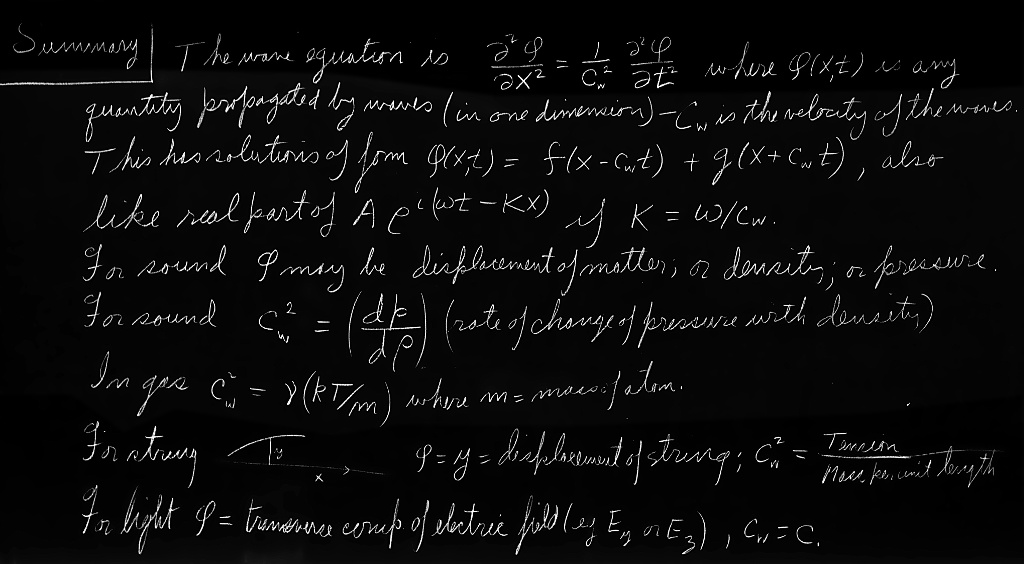 Summary The wave equation is ∂²φ/∂x² = 1/C_w² ∂²φ/∂t² where φ(x,t) is any
quantity propagated by waves (in one dimension) – C_w is the velocity of the waves.
This has solutions of form φ(x,t) = f(x - C_w t) + g(x + C_w t), also
like real part of A e^{i(ωt - Kx)} if K = ω/C_w.
For sound φ may be displacement of matter; or density; or pressure.
For sound C_w² = (dp/dρ) (rate of change of pressure with density)
In gas C_w² = γ(kT/m) where m = mass of atom.
For string y x φ = y = displacement of string; C_w² = Tension/Mass per unit length
For light φ = transverse comp of electric field (eg E_y or E_z), C_w = C.